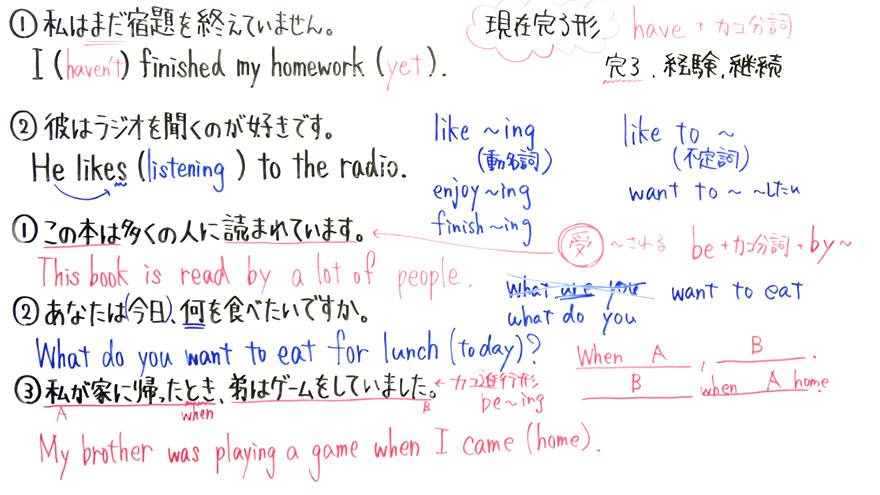 ① 私はまだ宿題を終えていません。
現在完了形 have + カコ分詞
I (haven't) finished my homework (yet).
完了、経験、継続
② 彼はラジオを聞くのが好きです。
like ~ing
(動名詞)
like to ~
(不定詞)
He likes (listening) to the radio.
enjoy ~ing
want to ~ ~したい
finish ~ing
① この本は多くの人に読まれています。
受 ~される be + カコ分詞 + by ~
This book is read by a lot of people.
What are you
want to eat
what do you
② あなたは(今日)、何を食べたいですか。
What do you want to eat for lunch (today)?
When A, B.
B when A home
③ 私が家に帰ったとき、弟はゲームをしていました。
A when B
← カコ進行形
be ~ing
My brother was playing a game when I came (home).